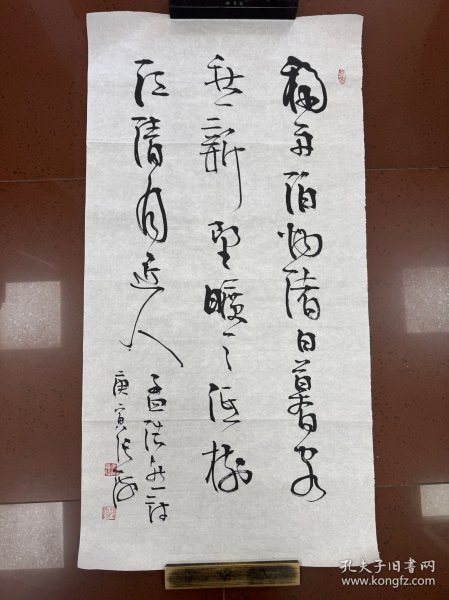 移舟泊烟渚日暮客
愁新野曠天低树
江清月近人
孟浩然诗
庚寅
孔夫子旧书网
www.kongfz.com